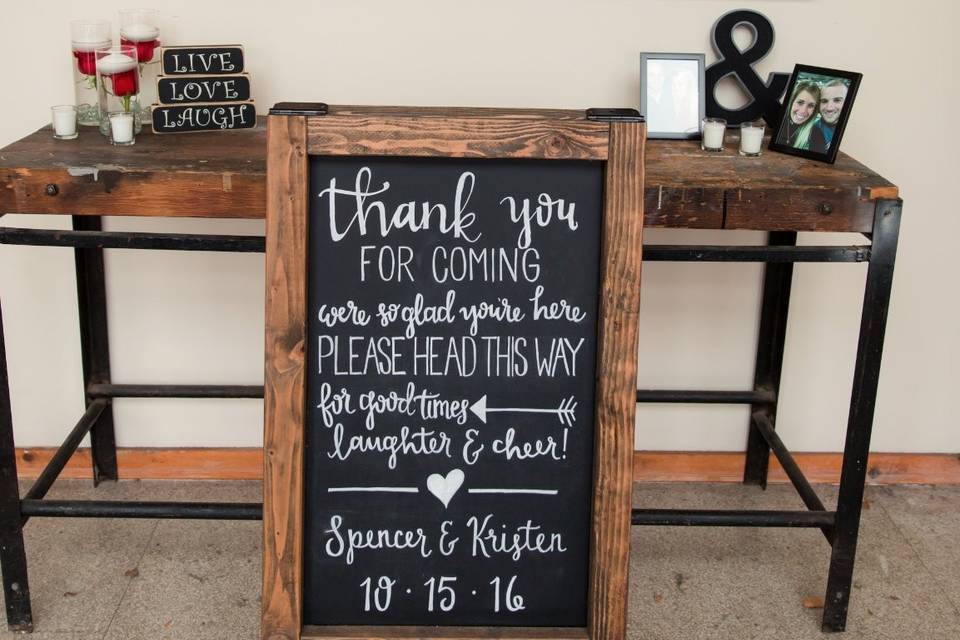 LIVE
LOVE
LAUGH
&
thank you
FOR COMING
we're so glad you're here
PLEASE HEAD THIS WAY
for good times
laughter & cheer!
Spencer & Kristen
10 · 15 · 16